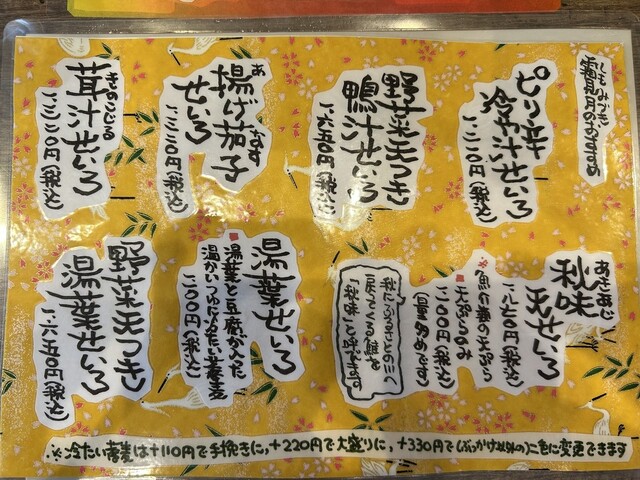 しもみづき
霜見月のおすすめ
ピリ辛
冷や汁せいろ
一、二一〇円(税込)
野菜天つき
鴨汁せいろ
一、六五〇円(税込)
あ なす
揚げ茄子
せいろ
一、二一〇円(税込)
きのこじる
茸汁せいろ
一、二一〇円(税込)
あきあじ
秋味
天せいろ
一、八七〇円(税込)
魚介類の天ぷら
天ぷらのみ
一、一〇〇円(税込)
(量多めです)
秋に
戻ってくる鮭を
「秋味」と呼びます
湯葉せいろ
湯葉と豆腐が入った
温かいつゆに冷たい蕎麦
一、一〇〇円(税込)
野菜天つき
湯葉せいろ
一、六五〇円(税込)
※冷たい蕎麦は+110円で手挽きに,+220円で大盛りに,+330円で(ぶっかけ以外の)二色に変更できます